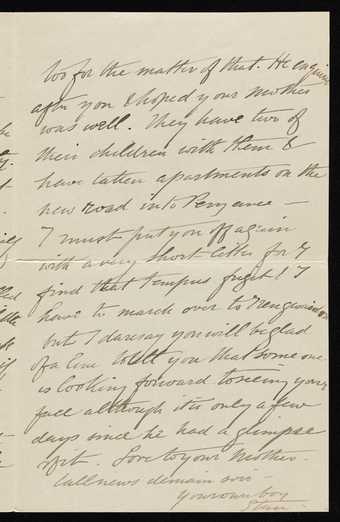 too for the matter of that. He enquired
after you & hoped your Mother
was well. They have two of
their children with them &
have taken apartments on the
new road into Penzance –
I must put you off again
with a very short letter for I
find that tempus fugit! I
have to march over to
but I daresay you will be glad
of a line to tell you that some one
is looking forward to seeing your
face although it is only a few
days since he had a glimpse
of it. Love to your Mother.
All news demain soir
Your own boy